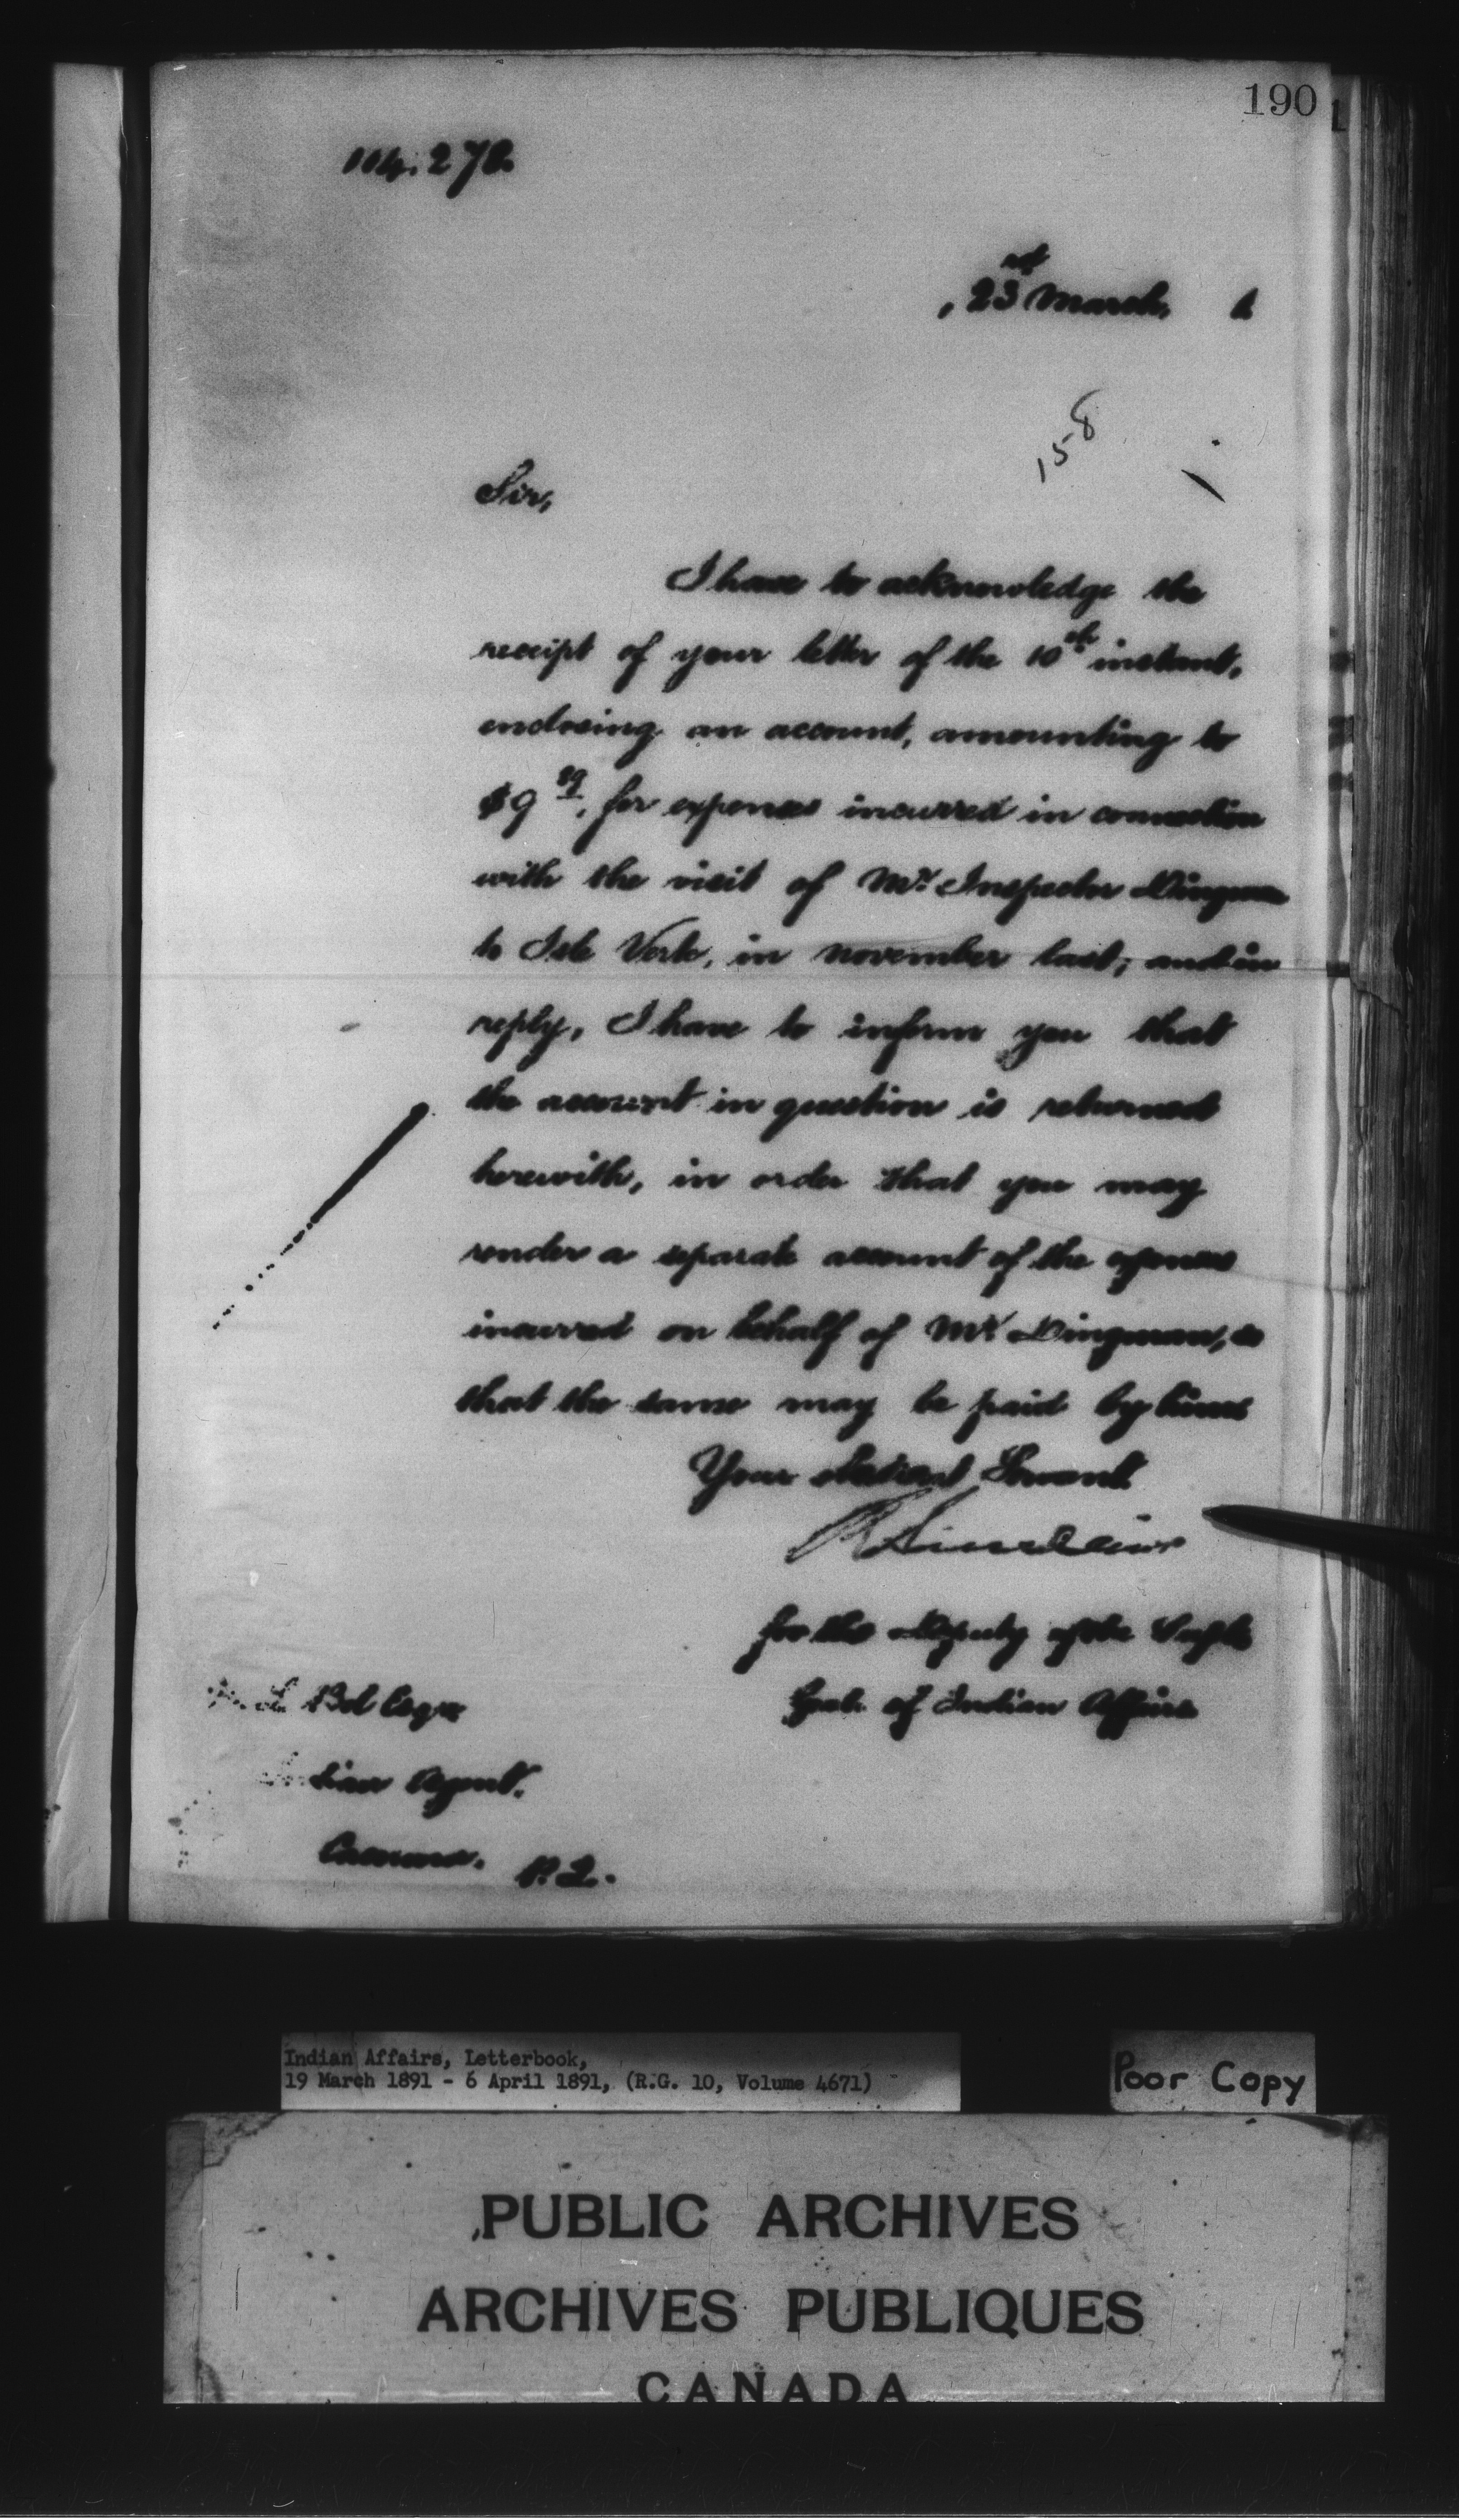 190
114.278
23rd March, 1
158
Sir,
I have to acknowledge the
receipt of your letter of the 10th instant,
enclosing an account, amounting to
$9 89, for expenses incurred in connection
with the visit of Mr Inspector Dingman
to Isle Verte, in November last; and in
reply, I have to inform you that
the account in question is returned
herewith, in order that you may
render a separate account of the expenses
incurred on behalf of Mr Dingman, so
that the same may be paid by him
Your obedient Servant
R Sinclair
for the Deputy of the Supt
Genl. of Indian Affairs
Esqre
Indian Agent.
P.Q.
Indian Affairs, Letterbook,
19 March 1891 - 6 April 1891, (R.G. 10, Volume 4671)
Poor Copy
PUBLIC ARCHIVES
ARCHIVES PUBLIQUES
CANADA